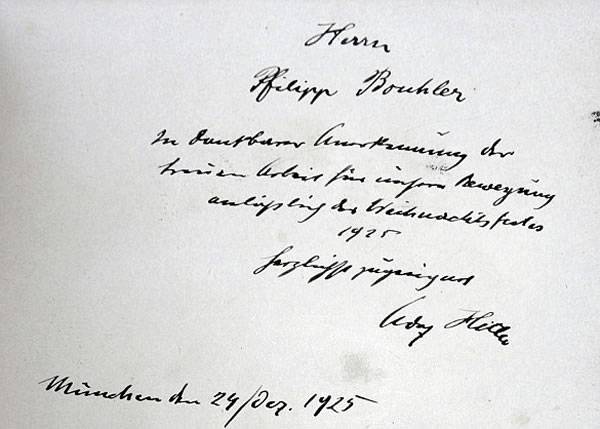 Herrn
Philipp Bouhler
In dankbarer Anerkennung der
treuen Arbeit für unsere Bewegung
anläßlich des Weihnachtsfestes
1925
herzlichst zugeeignet
Adolf Hitler
München den 24/Dez. 1925